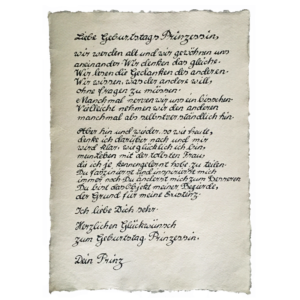 Liebe Geburtstags Prinzessin,
wir werden alt und wir gewöhnen uns
aneinander. Wir denken das gleiche.
Wir lesen die Gedanken des anderen.
Wir wissen, was der andere will,
ohne fragen zu müssen.
Manchmal nerven wir uns ein bisschen.
Vielleicht nehmen wir den anderen
manchmal als selbstverständlich hin.
Aber hin und wieder, so wie heute,
denke ich darüber nach und mir
wird klar, wie glücklich ich bin,
mein Leben mit der tollsten Frau
die ich je kennengelernt habe, zu teilen.
Du faszinierst und inspirierst mich
immer noch. Du änderst mich zum Besseren
Du bist das Objekt meiner Begierde,
der Grund für meine Existenz.
Ich liebe Dich sehr.
Herzlichen Glückwunsch
zum Geburtstag Prinzessin.
Dein Prinz